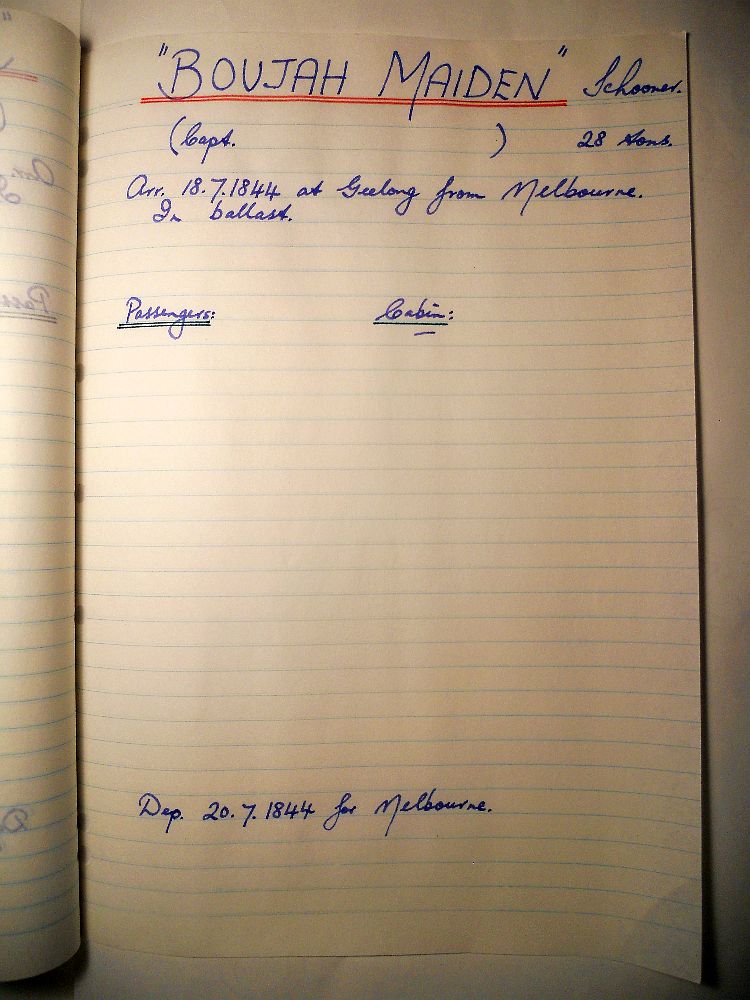 "BOUJAH MAIDEN" Schooner.
(Capt. ) 28 tons.
Arr. 18.7.1844 at Geelong from Melbourne.
In ballast.
Passengers: Cabin:
Dep. 20.7.1844 for Melbourne.